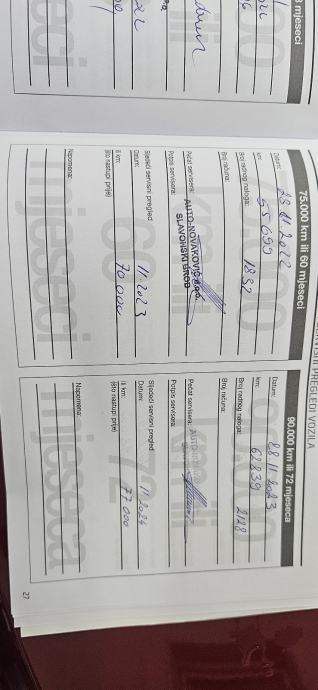 8 mjeseci
SERVISNI PREGLEDI VOZILA
75.000 km ili 60 mjeseci
Datum: 23 11 2022
km: 55 690
Broj radnog naloga: 1832
Broj računa:
Pečat servisera: AUTO-NOVAKOVIĆ d.o.o.
SLAVONSKI BROD
Potpis servisera:
Sljedeći servisni pregled
Datum: 11/2023
ili km: 70 000
(što nastupi prije)
Napomena:
90.000 km ili 72 mjeseca
Datum: 28 11 2023
km: 62839
Broj radnog naloga: 2128
Broj računa:
Pečat servisera:
Potpis servisera:
Sljedeći servisni pregled
Datum: 11 2024
ili km: 77 000
(što nastupi prije)
Napomena:
27